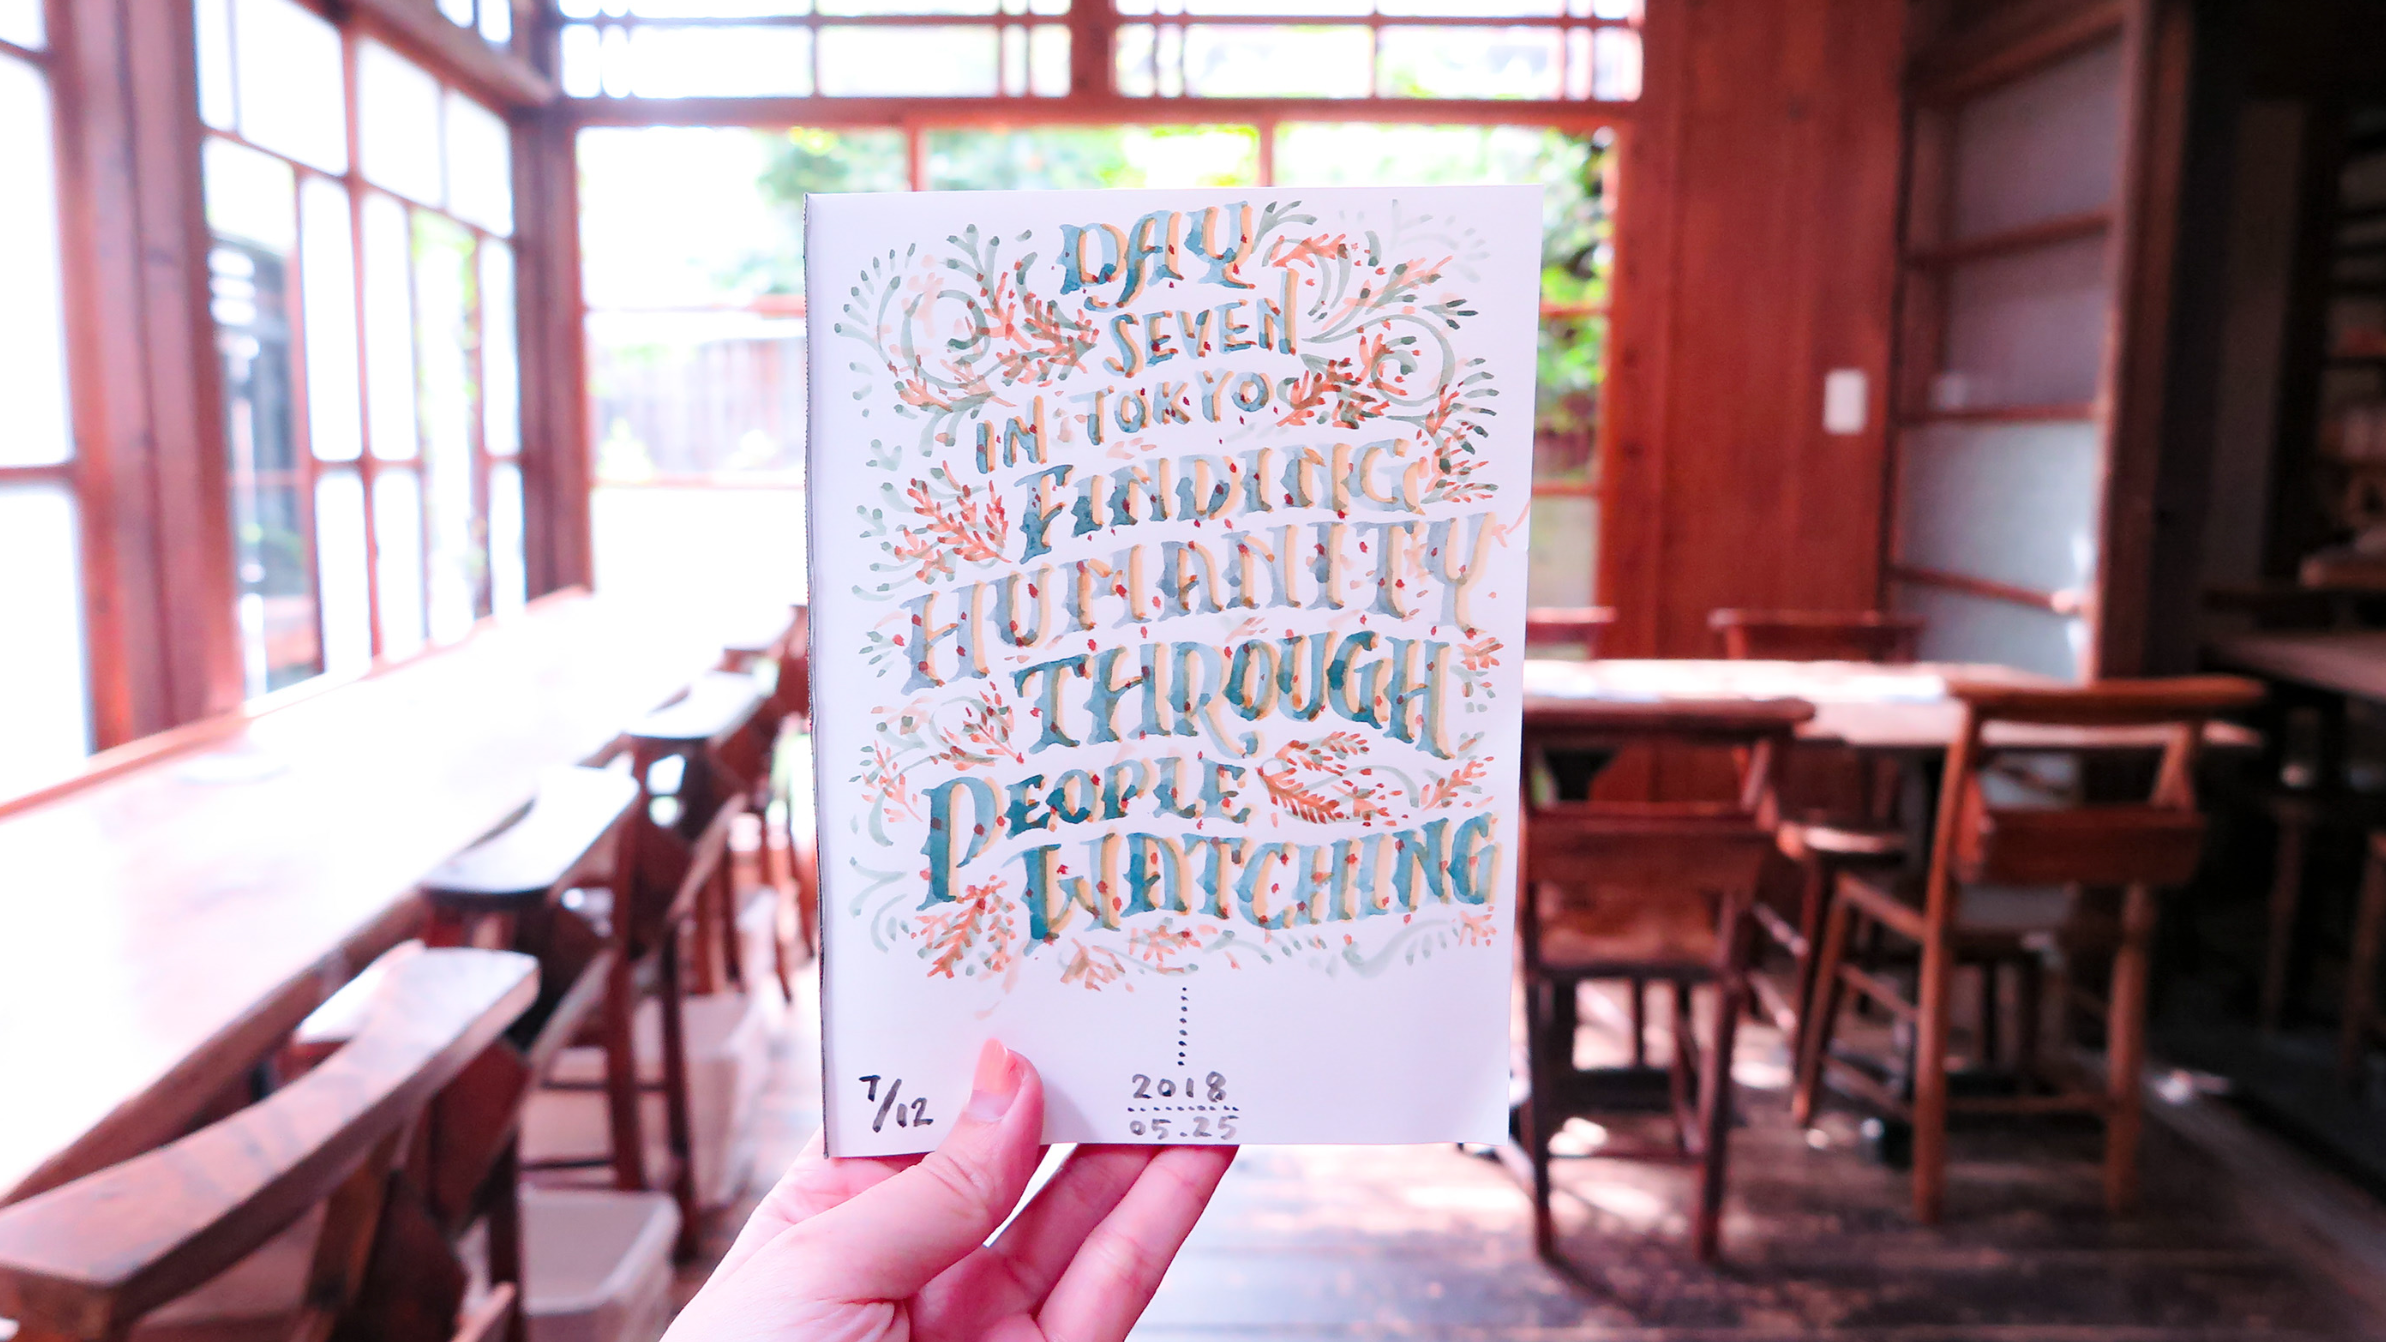 DAY
SEVEN
IN TOKYO
FINDING
HUMANITY
THROUGH
PEOPLE
WATCHING
7/12
2018
05.25